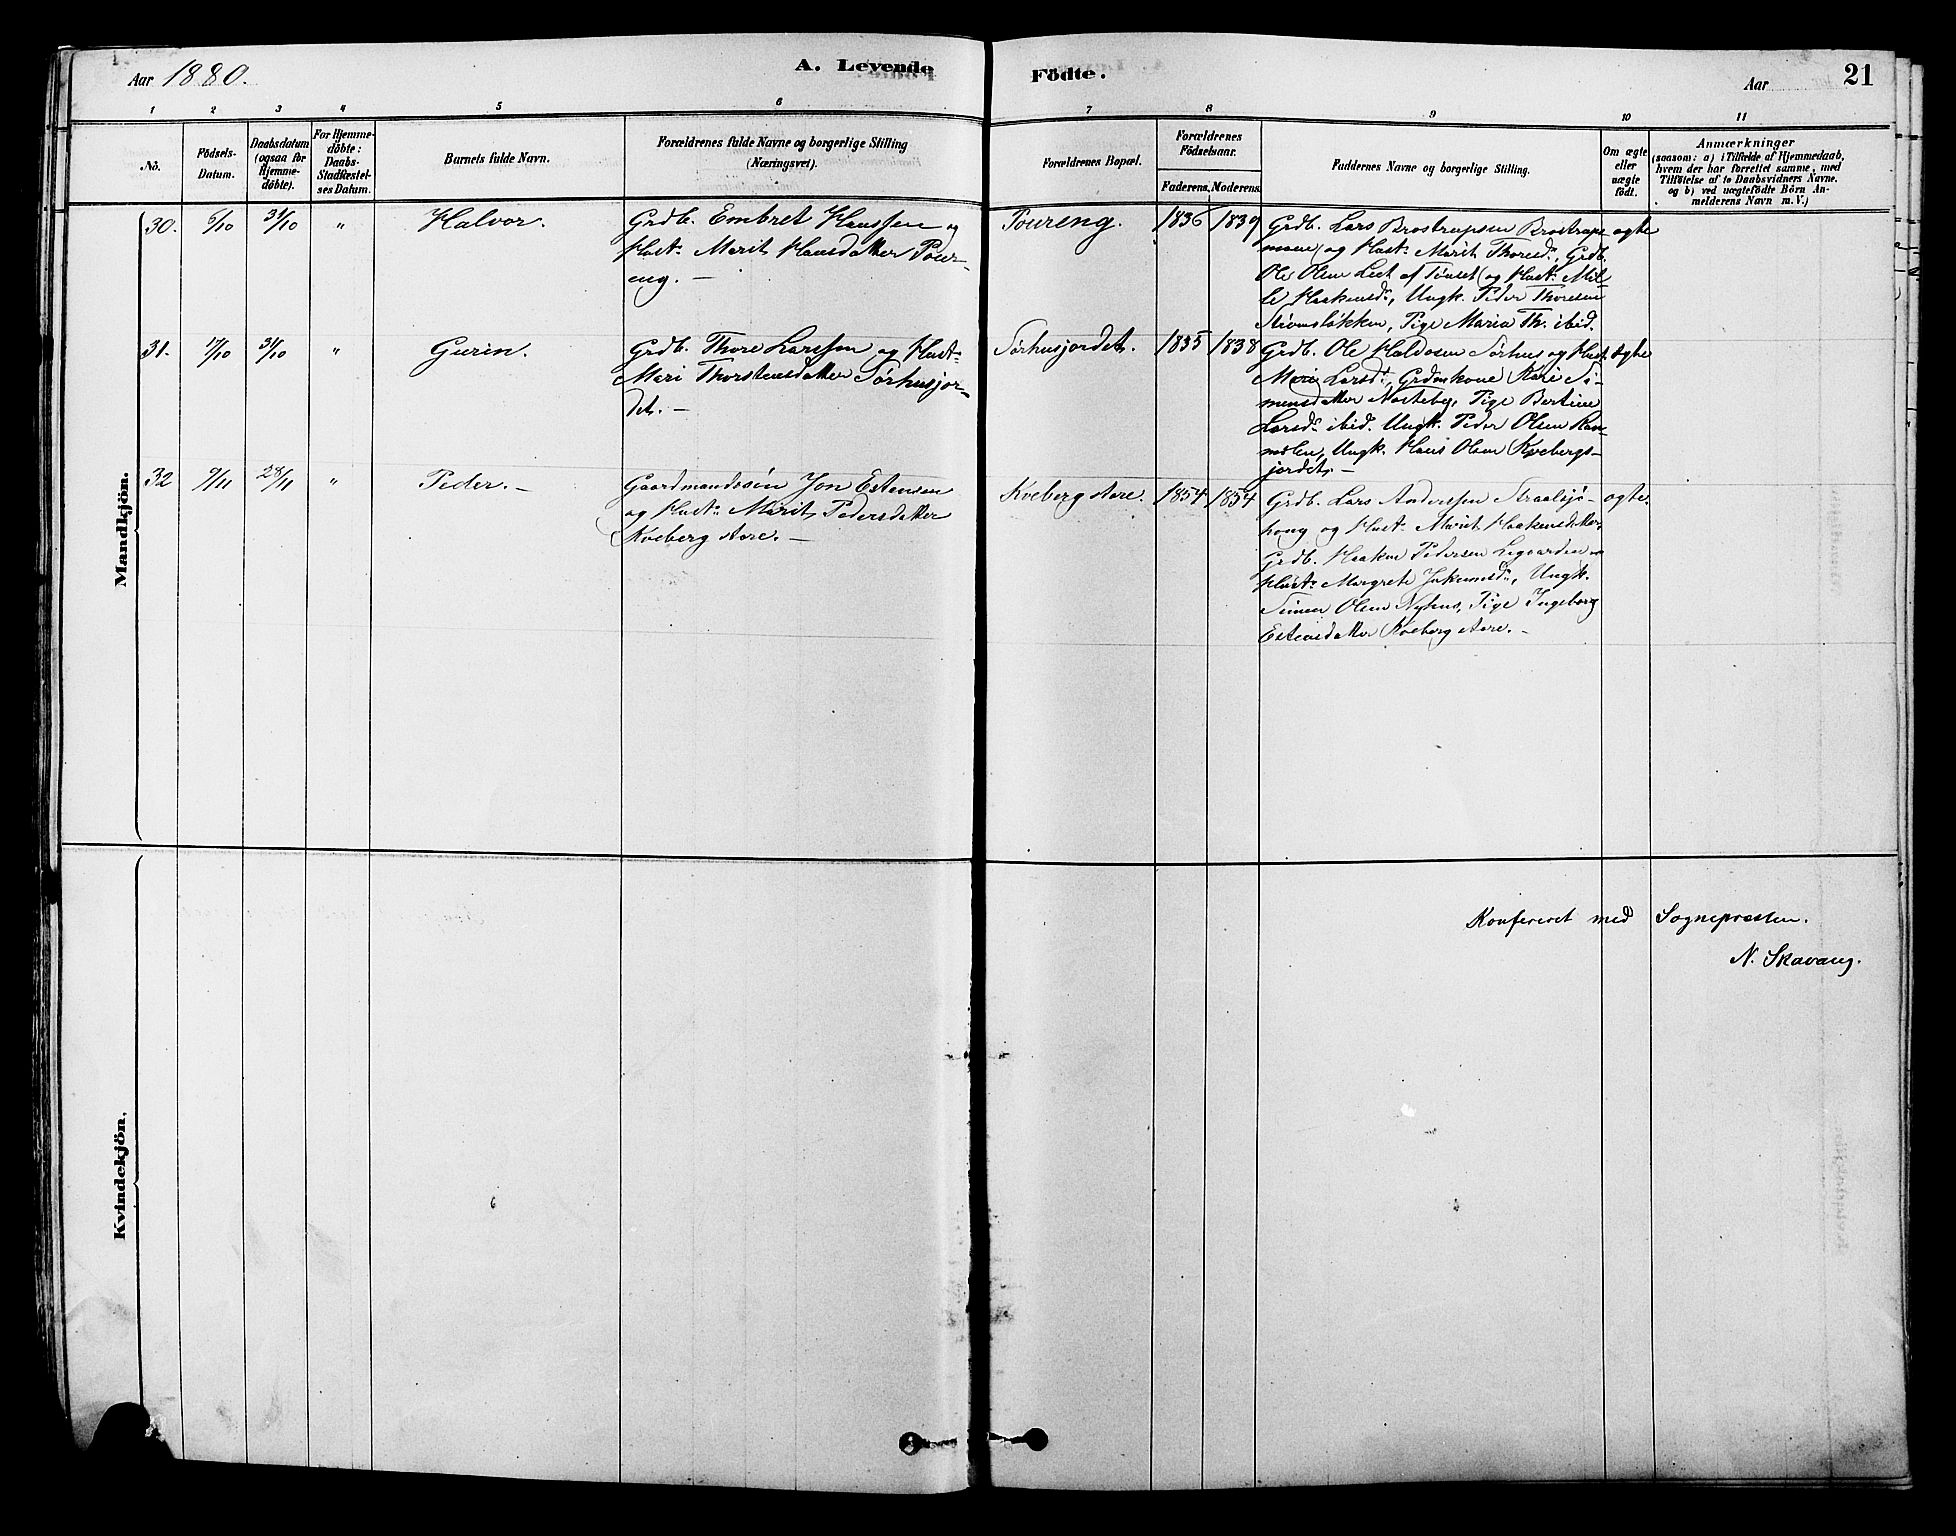 Aar 1880.
A. Levende
Födte.
Aar
21
1 2 3 4 5 6 7 8 9 10 11
No.
Födsels-
Datum.
Daabsdatum
(ogsaa for
Hjemme-
döbte).
For Hjemme-
döbte:
Daabs-
Stadfæstel-
ses Datum.
Barnets fulde Navn.
Forældrenes fulde Navne og borgerlige Stilling
(Næringsvei).
Forældrenes Bopæl.
Forældrenes
Födselsaar.
Faderens. Moderens.
Faddernes Navne og borgerlige Stilling.
Om ægte
eller
uægte
födt.
Anmærkninger
(saasom: a) i Tilfælde af Hjemmedaab,
hvem der har forrettet samme, med
Tilföielse af to Daabsvidners Navne.
og b) ved uægtefödte Börn An-
melderens Navn m. V.)
Mandkjön.
30.
6/10
31/10
"
Halvor.
Grdb. Embret Hanssen og
Hust: Marit Hansdatter Pour-
eng. —
Poureng.
1836
1839
Grdb. Lars Brostrupsen Brostrups-
moen og Hust: Marit Thoresd:, Grdb.
Ole Olsen Leet af Tönset og Hust: Mil-
le Haakensd:, Ungk. Peder Thoresen
Strömsløkken, Pige Maria Th. ibid.
ægte
31.
17/10
31/10
"
Gurin.
Grdb. Thore Larssen og Hust:
Mari Thorstensdatter Sørhusjor-
det. —
Sørhusjordet.
1835
1838
Grdb. Ole Haldosen Sørhus og Hust.
Mari Larsd:, Grdmkone Kari Si-
mensdatter Nosteby, Pige Bertine
Larsd: ibid. Ungk. Peder Olsen Ram-
mølen, Ungk. Hans Olsen Kvebergs-
jordet. —
ægte
32
9/11
28/11
"
Peder. —
Gaardmandssön Jon Estensen
og Hust: Marit Pedersdatter
Kveberg store. —
Kveberg store.
1854
1854
Grdb. Lars Anderssen Straalsjö-
houg og Hust. Marit Haakensdatter,
Grdb. Haakon Pedersen Legaarden og
Hust: Margrete Jakumsd:, Ungk.
Simen Olsen Nyhus, Pige Ingeborg
Estensdatter Kveberg store. —
ægte.
Kvindekjön.
Konfereret med Sognepresten.
N. Skavang.